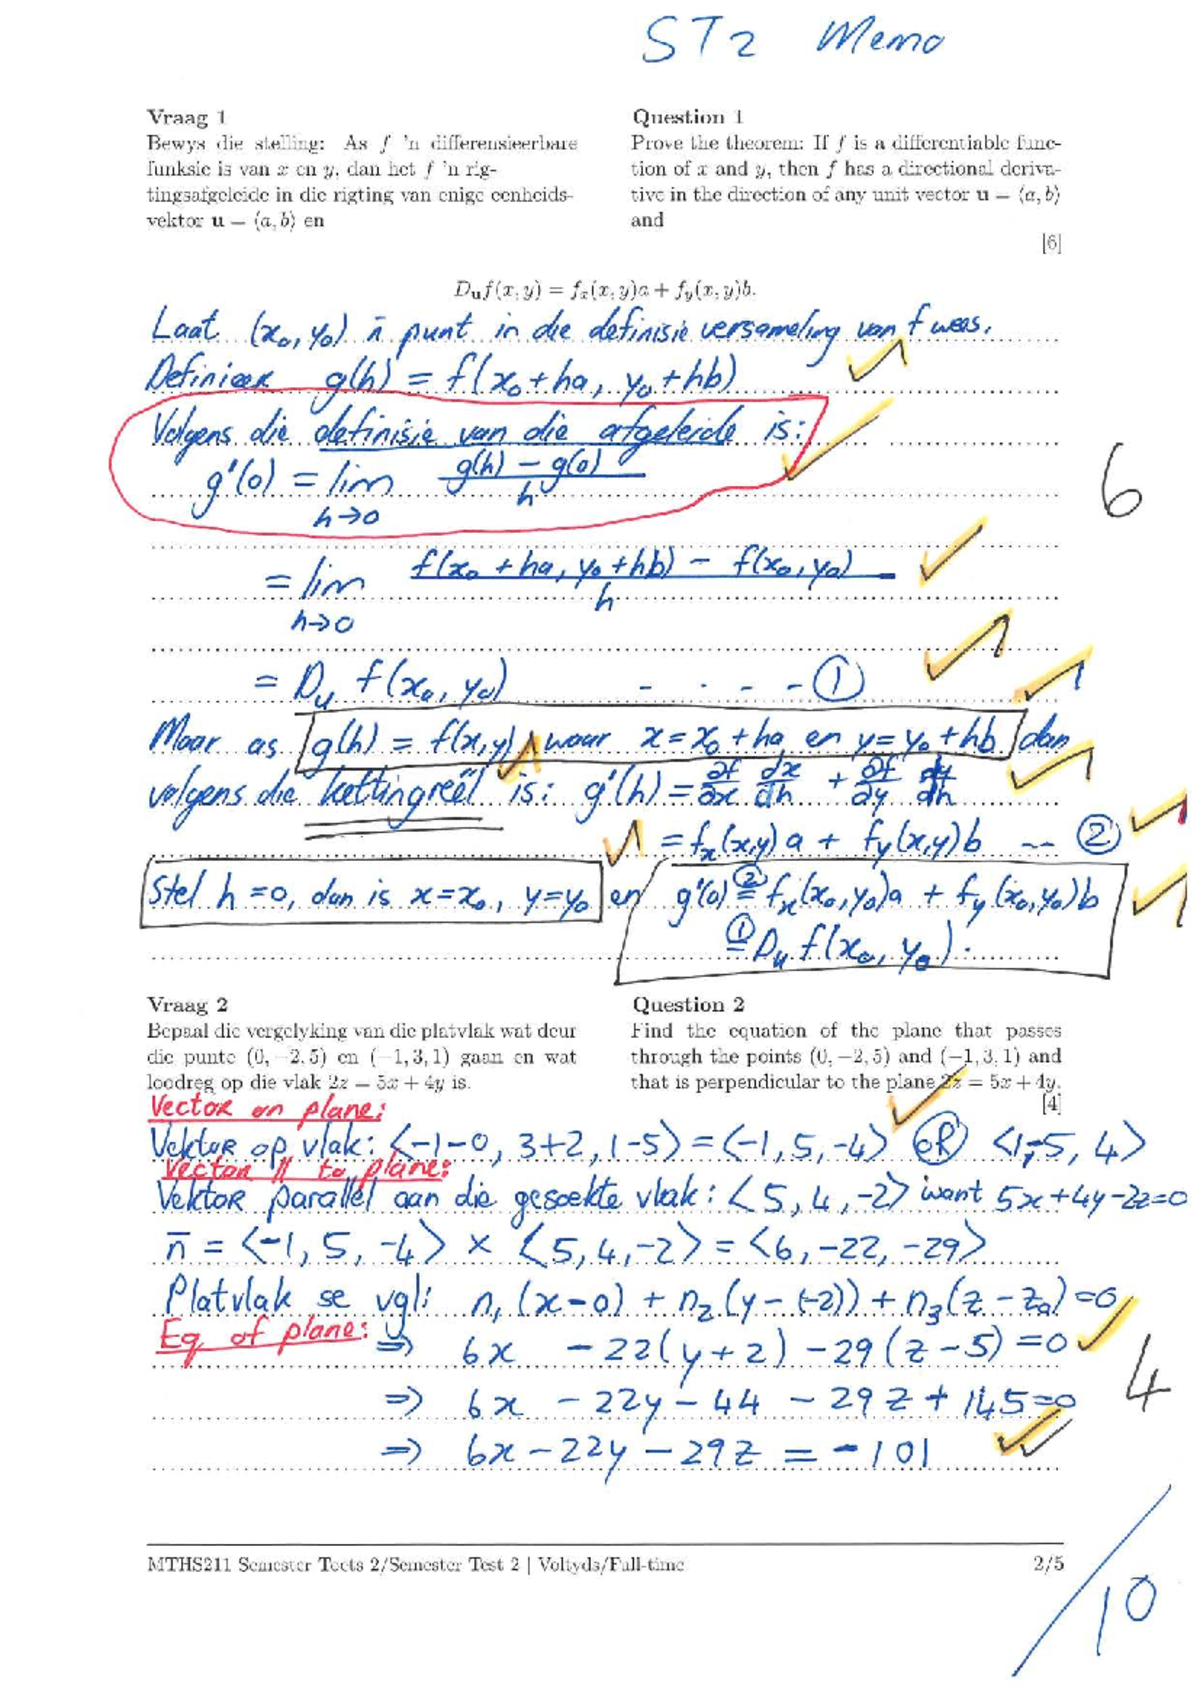 ST2 Memo
Vraag 1
Bewys die stelling: As f 'n differensieerbare
funksie is van x en y, dan het f 'n rig-
tingsafgeleide in die rigting van enige eenheids-
vektor u = ⟨a, b⟩ en
Question 1
Prove the theorem: If f is a differentiable func-
tion of x and y, then f has a directional deriva-
tive in the direction of any unit vector u = ⟨a, b⟩
and
[6]
D_u f(x, y) = f_x(x, y)a + f_y(x, y)b.
Laat (x₀, y₀) 'n punt in die definisie versameling van f wees.
Definieer g(h) = f(x₀+ha, y₀+hb)
Volgens die definisie van die afgeleide is:
g'(0) = lim h→0 (g(h) − g(0))/h
6
= lim h→0 (f(x₀+ha, y₀+hb) − f(x₀, y₀))/h
= D_u f(x₀, y₀) - - - - ①
Maar as g(h) = f(x,y), waar x = x₀+ha en y = y₀+hb dan
volgens die kettingreël is: g'(h) = ∂f/∂x dx/dh + ∂f/∂y dy/dh
= f_x(x,y)a + f_y(x,y)b -- ②
Stel h=0, dan is x=x₀, y=y₀ en g'(0) ②= f_x(x₀,y₀)a + f_y(x₀,y₀)b
①= D_u f(x₀, y₀).
Vraag 2
Bepaal die vergelyking van die platvlak wat deur
die punte (0, −2, 5) en (−1, 3, 1) gaan en wat
loodreg op die vlak 2z = 5x + 4y is.
Question 2
Find the equation of the plane that passes
through the points (0, −2, 5) and (−1, 3, 1) and
that is perpendicular to the plane 2z = 5x + 4y.
[4]
Vector on plane:
Vektor op vlak: ⟨−1−0, 3+2, 1−5⟩ = ⟨−1, 5, −4⟩ OR ⟨1, −5, 4⟩
Vector // to plane:
Vektor parallel aan die gesoekte vlak: ⟨5, 4, −2⟩ want 5x+4y−2z=0
n̄ = ⟨−1, 5, −4⟩ × ⟨5, 4, −2⟩ = ⟨6, −22, −29⟩
Platvlak se vgl: n₁(x−0) + n₂(y−(−2)) + n₃(z−z₀) = 0
Eq of plane:
⇒ 6x −22(y+2) −29(z−5) = 0
⇒ 6x − 22y − 44 − 29z + 145 = 0
4
⇒ 6x − 22y − 29z = −101
MTHS211 Semester Toets 2/Semester Test 2 | Voltyds/Full-time
2/5
/10